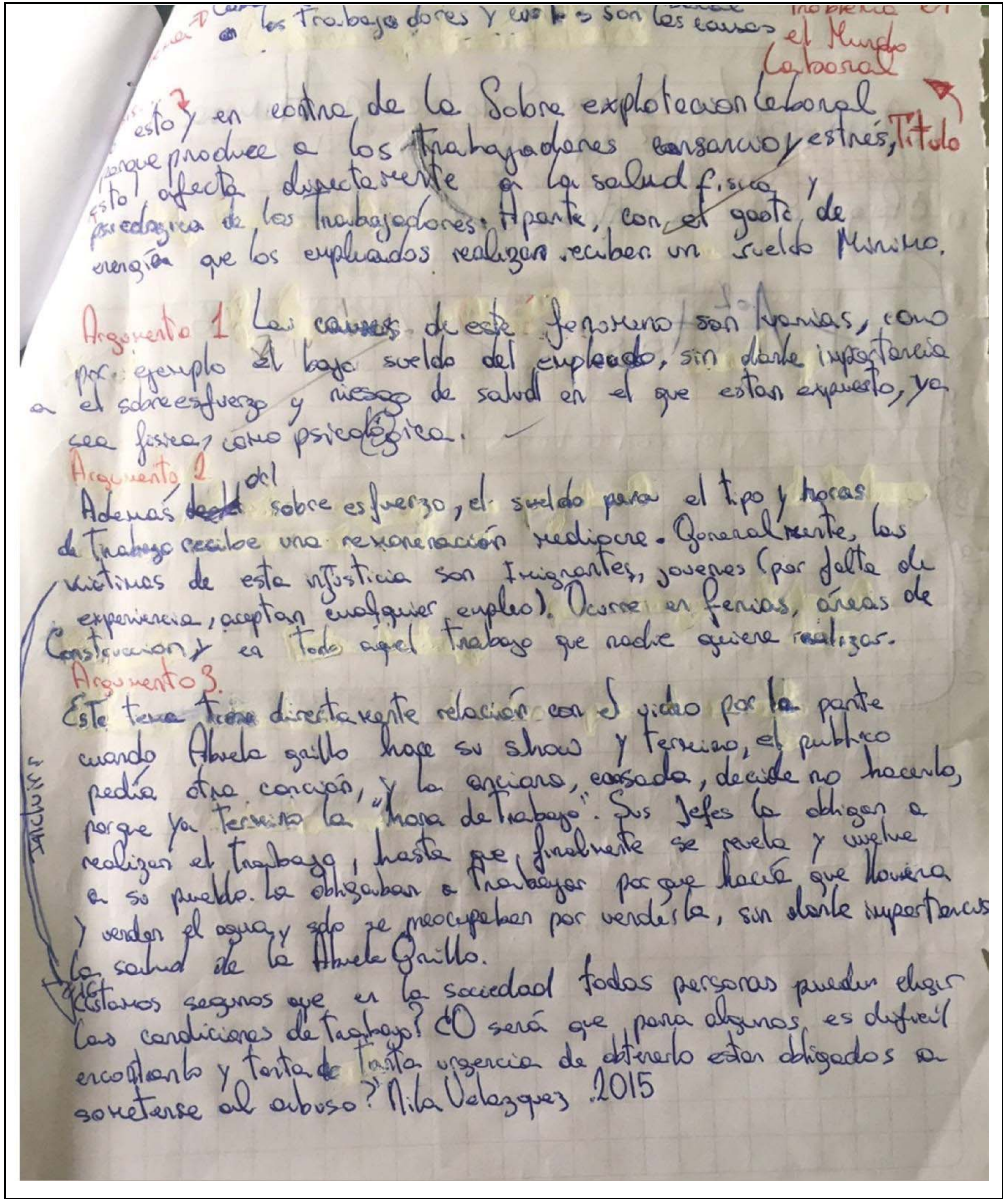 los Trabajadores y son las causas
el Mundo
Laboral
Título
estoy en contra de la Sobre explotacion laboral
porque produce a los trabajadores cansancio y estrés,
esto afecta directamente a la salud fisica y
psicologica de los trabajadores. Aparte, con el gasto de
energía que los empleados realizan reciben un sueldo Minimo.
Argumento 1 Las causas de este fenomeno son varias, como
por ejemplo el bajo sueldo del empleado, sin darle importancia
a el sobreesfuerzo y riesgo de salud en el que estan expuesto, ya
sea fisica, como psicológica.
Argumento 2
Además del sobre esfuerzo, el sueldo para el tipo y horas
de trabajo recibe una remoneración mediocre. Generalmente, las
victimas de esta injusticia son Imigrantes, jovenes (por falta de
experiencia, aceptan cualquier empleo). Ocurre en ferias, áreas de
Construccion y en todo aquel trabajo que nadie quiere realizar.
Argumento 3.
Este tema tiene directamente relación con el video por la parte
cuando Abuela grillo hace su show y termino, el publico
pedía otra canción, y la anciana, cansada, decide no hacerlo,
porque ya termino la "hora de trabajo". Sus Jefes la obligan a
realizar el trabajo, hasta que finalmente se revela y vuelve
a su pueblo. La obligaban a trabajar porque hacía que lloviera
y vender el agua y solo se preocupaban por venderla, sin darle importancia
la salud de la Abuela Grillo.
¿Estamos seguros que en la sociedad todas personas pueden elegir
las condiciones de trabajo? ¿O será que para algunos es dificil
encontrarlo y tanta de tanta urgencia de obtenerlo estan obligados a
someterse al abuso? Mila Velazquez .2015